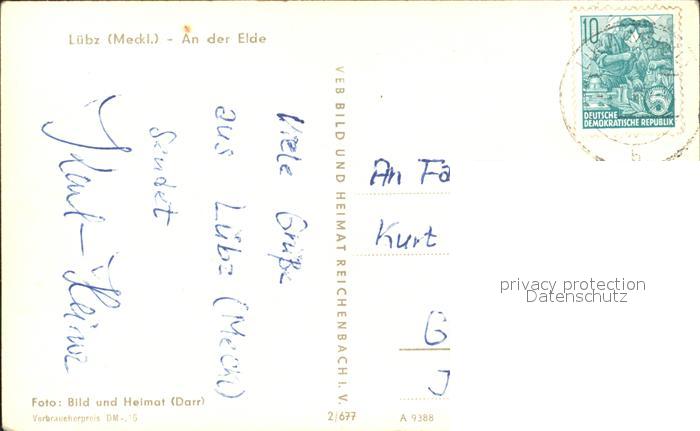 Lübz (Meckl.) - An der Elde
10
DEUTSCHE
DEMOKRATISCHE REPUBLIK
Viele Grüße
aus Lübz (Meckl)
sendet
Karl-Heinz
VEB BILD UND HEIMAT REICHENBACH I. V.
An Fa
Kurt
G
J
privacy protection
Datenschutz
Foto: Bild und Heimat (Darr)
Verbraucherpreis DM -,15
2/677
A 9388